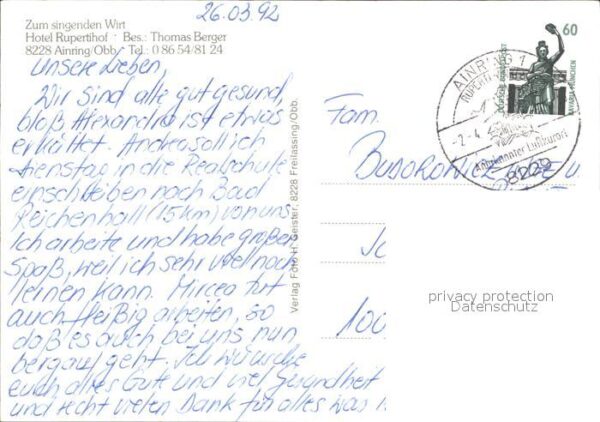 26.03.92
Zum singenden Wirt
Hotel Rupertihof · Bes.: Thomas Berger
8228 Ainring/Obb. Tel.: 0 86 54/81 24
Unsere Lieben,
Wir sind alle gut gesund,
bloß Alexandra ist etwas
erkältet. Andrea soll ich
dienstag in die Realschule
einschreiben nach Bad
Reichenhall (15 km) von uns.
Ich arbeite und habe großen
Spaß, weil ich sehr viel noch
lernen kann. Mircea tut
auch fleißig arbeiten, so
daß es auch bei uns nun
bergauf geht. Ich wünsche
euch alles Gute und viel Gesundheit
und recht vielen Dank für alles was
Verlag Foto H. Geister, 8228 Freilassing/Obb.
60
DEUTSCHE BUNDESPOST
BAVARIA MÜNCHEN
AINRING 1
RUPERTI
-2.-4.
Anerkannter Luftkurort
8229
Fam.
100
privacy protection
Datenschutz